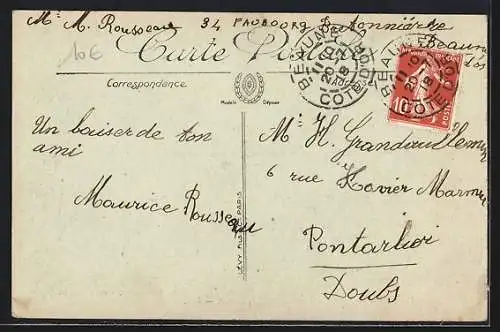 Mr M. Rousseau 34 FAUBOURG Bretonnière
Beaune
10€
Carte Postale
BEAUNE
COTE D'OR
BEAUNE
COTE D'OR
10
POSTES
Correspondance
Modèle Déposé
Un baiser de ton
ami
Maurice Rousseau
LÉVY FILS
PARIS
Mr H. Grandvuillemin
6 rue Xavier Marmier
Pontarlier
Doubs